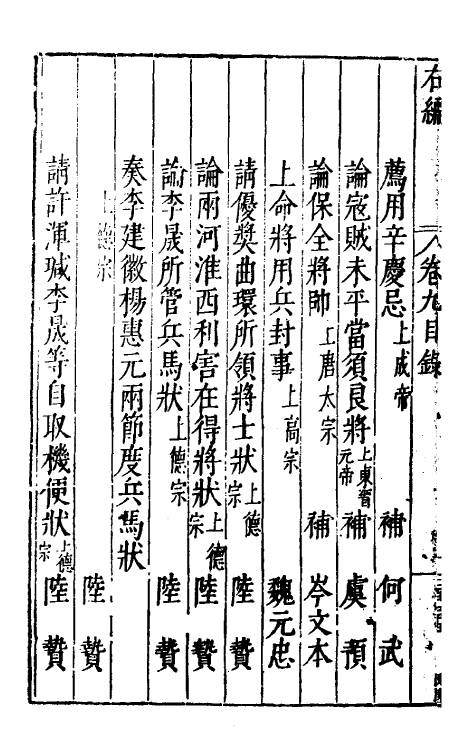 右編
卷九目錄
薦用辛慶忌上成帝 補 何武
論寇賊未平當須良將上東晉元帝 補 虞預
論保全將帥上唐太宗 補 岑文本
上命將用兵封事上高宗 魏元忠
請優獎曲環所領將士狀上德宗 陸贄
論兩河淮西利害在得將狀上德宗 陸贄
論李晟所管兵馬狀上德宗 陸贄
奏李建徽楊惠元兩節度兵馬狀
上德宗 陸贄
請許渾瑊李晟等自取機便狀上德宗 陸贄